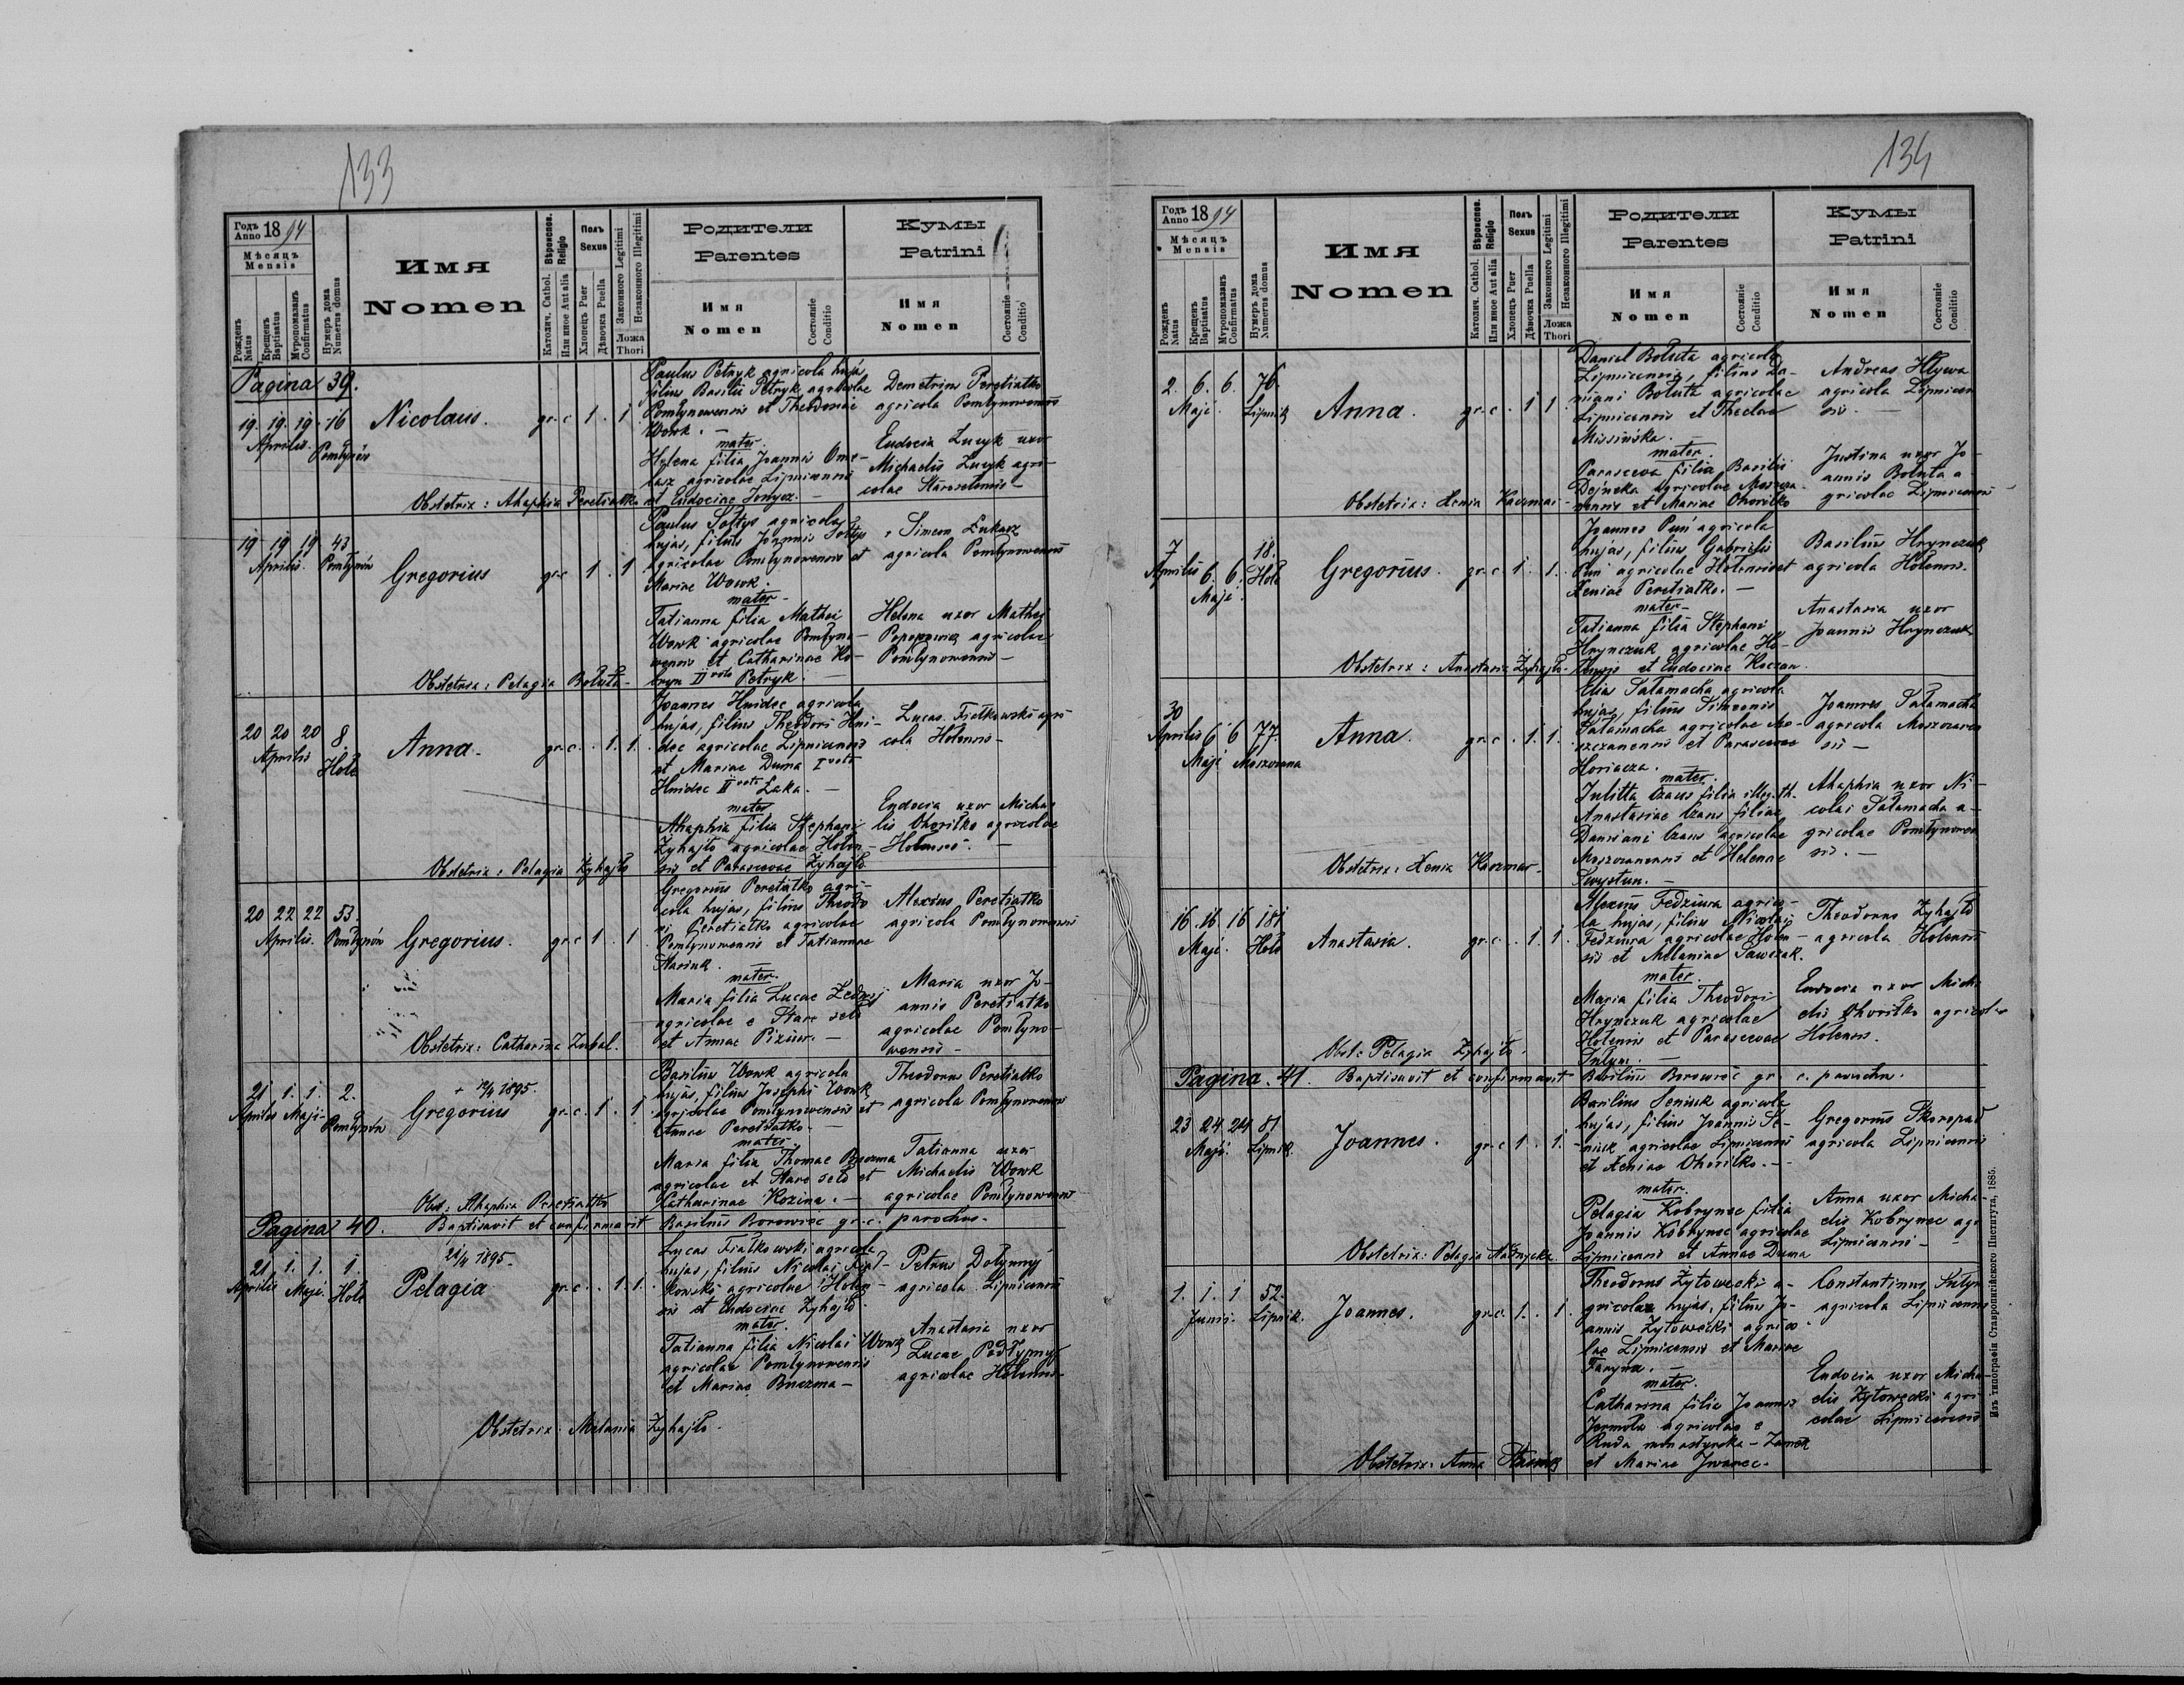 133
Годъ Anno 1894
Мѣсяць
Mensis
Рожденъ Natus
Крещенъ Baptisatus
Мѵропомазанъ Confirmatus
Нумеръ дома Numerus domus
Имя
Nomen
Вѣроиспов. Religio
Католич. Cathol.
Или иное Aut alia
Полъ
Sexus
Хлопецъ Puer
Дѣвочка Puella
Законного Legitimi
Незаконного Illegitimi
Ложа
Thori
Родители
Parentes
Имя
Nomen
Состояніе
Conditio
Кумы
Patrini
Имя
Nomen
Состояніе
Conditio
Pagina 39.
19. 19. 19. 16
Aprilis. Pomłynów
Nicolaus.
gr. c 1. 1
Paulus Petryk agricola hujas
filius Basilii Petryk agricolae
Pomłynowensis et Theodosiae
Wowk. —
mater.
Helena filia Joannis Ome-
lasz agricolae Lipnicensis
et Eudociae
Demetrius Peretiatko
agricola Pomłynowensis
Eudocia Lucyk uxor
Michaelis Lucyk agri-
colae Staroselensis —
Obstetrix: Ahaphia Peretiatko
19 19 19 43
Aprilis. Pomłynów
Gregorius
gr. c 1. 1
Paulus Sołtys agricola
hujas, filius Joannis Sołtys
agricolae Pomłynowensis et
Mariae Wowk.
mater —
Tatianna filia Mathei
Wowk agricolae Pomłyno-
wensis et Catharinae Ko-
bryn II voto Petryk.
Simeon Łukasz
agricola Pomłynowensis
Helena uxor Mathei
agricolae
Pomłynowensis —
Obstetrix: Pelagia Bołuta —
20 20 20 8.
Aprilis Hołe
Anna.
gr. c. . 1. 1.
Joannes Hnidec agricola
hujas, filius Theodori Hni-
dec agricolae Lipnicensis
et Mariae Duma I voto
Hnidec II voto Łaka. —
mater
Ahaphia filia Stephani
Żyhajło agricolae Holen-
sis et Parascevae Żyhajło.
Lucas Fiełkowski agri
cola Holensis —
Eudocia uxor Michae
lis Ohoriłko agricolae
Holensis. —
Obstetrix: Pelagia Żyhajło
20 22 22 53.
Aprilis. Pomłynów
Gregorius.
gr. c 1. 1.
Gregorius Peretiatko agri-
cola hujas, filius Theodo
ri Peretiatko agricolae
Pomłynowensis et Tatiannae
Stasiuk.
mater.
Maria filia Lucae
agricolae e Stare seło
et Annae Piziur. —
Alexius Peretiatko
agricola Pomłynowensis
Maria uxor Jo-
annis Peretiatko
agricolae Pomłyno-
wensis —
Obstetrix: Catharina Zubal.
21 1. 1. 2.
Aprilis Maji Pomłynów
1895.
Gregorius
gr. c. 1. 1
Basilius Wowk agricola
hujas, filius Josephi Wowk
agricolae Pomłynowensis et
Annae Peretiatko. —
mater
Maria filia Thomae Buczma
agricolae et Stare seło et
Catharinae Kozina. —
Theodorus Peretiatko
agricola Pomłynowensis
Tatianna uxor
Michaelis Wowk
agricolae Pomłynowensis
Obst: Ahaphia Peretiatko
Pagina 40. Baptisavit et confirmavit Basilius Borowiec gr. c. parochus.
21 1. 1. 1.
Aprilis Maji. Hołe
21/4 1895.
Pelagia
gr. c. . 1. 1.
Lucas Fiałkowski agricola
hujas, filius Nicolai Fiał-
kowski agricolae Holen-
sis et Eudociae Żyhajło.
mater.
Tatianna filia Nicolai Wowk
agricolae Pomłynowensis
et Mariae Buczma —
Petrus Dołynnyj
agricola Lipnicensis
Anastasia uxor
Lucae
agricolae Holensis —
Obstetrix: Melania Żyhajło.
134
Годъ Anno 1894
Мѣсяць
Mensis
Рожденъ Natus
Крещенъ Baptisatus
Мѵропомазанъ Confirmatus
Нумеръ дома Numerus domus
Имя
Nomen
Вѣроиспов. Religio
Католич. Cathol.
Или иное Aut alia
Полъ
Sexus
Хлопецъ Puer
Дѣвочка Puella
Законного Legitimi
Незаконного Illegitimi
Ложа
Thori
Родители
Parentes
Имя
Nomen
Состояніе
Conditio
Кумы
Patrini
Имя
Nomen
Состояніе
Conditio
2. 6. 6. 76.
Maji. Lipnik
Anna.
gr. c . 1 1.
Daniel Bołuta agricola
Lipnicensis, filius Da-
miani Bołuta agricolae
Lipnicensis et Theclae
Missińska. —
mater.
Parasceva filia Basilii
Dejneka agricolae Moszcza
nensis et Mariae Ohoriłko
Andreas Hływa
agricola Lipnicen
sis. —
Justina uxor Jo-
annis Bołuta a
gricolae Lipnicensis
Obstetrix: Xenia Kaczmar —
7
Aprilis 6. 6. 18.
Maji. Hołe
Gregorius.
gr. c. 1. 1.
Joannes Puń agricola
hujas, filius Gabrielis
Puń agricolae Holensis et
Xeniae Peretiatko. —
mater —
Tatianna filia Stephani
Hrynczuk agricolae Ho-
lensis et Eudociae Koczan.
Basilius Hrynczuk
agricola Holensis.
Anastasia uxor
Joannis Hrynczuk
Obstetrix: Anastasia Żyhajło —
30
Aprilis 6 6 77.
Maji Moszczana
Anna.
gr. c. . 1. 1.
Elias Sałamacha agricola
hujas, filius Simeonis
Sałamacha agricolae Mo-
szczanensis et Parascevae
Horiacza.
mater.
Julitta Czaus filia illeg. th.
Anastasiae Czaus filiae
Damiani Czaus agricolae
Moszczanensis et Helenae
Swystun. —
Joannes Sałamacha
agricola Moszczanen
sis —
Ahaphia uxor Ni-
colai Sałamacha a-
gricolae Pomłynowen
sis. —
Obstetrix: Xenia Kaczmar.
16. 16. 16 181
Maji. Hołe
Anastasia.
gr. c. . 1. 1.
Alexius Fedziura agrico-
la hujas, filius Nicolai
Fedziura agricolae Holen-
sis et Melaniae Sawczak.
mater.
Maria filia Theodori
Hrynczuk agricolae
Holensis et Parascevae
Sułym. —
Theodorus Żyhajło
agricola Holensis
Eudocia uxor Micha
elis Ohoriłko agricolae
Holensis.
Obst: Pelagia Żyhajło.
Pagina 41. Baptisavit et confirmavit Basilius Borowiec gr. c. parochus.
23 24. 24 81
Maji. Lipnik.
Joannes.
gr. c 1. 1.
Basilius Seniuk agricola
hujas, filius Joannis Se-
niuk agricolae Lipnicensis
et Xeniae Ohoriłko. —
mater.
Pelagia Kobrynec filia
Joannis Kobrynec agricolae
Lipnicensis et Annae Duma
Gregorius Skoropad
agricola Lipnicensis
Anna uxor Micha-
elis Kobrynec agr
Lipnicensis —
Obstetrix: Pelagia
1. 1. 1 52.
Junii. Lipnik.
Joannes.
gr. c. 1. . 1.
Theodorus Żytowecki a-
gricola hujas, filius Jo-
annis Żytowecki agrico-
lae Lipnicensis et Mariae
Faryna. —
mater.
Catharina filia Joannis
Jarmoła agricolae e
Ruda monastyrska — Zamek
et Mariae Iwanec.
Constantinus Sułym
agricola Lipnicensis
Eudocia uxor Micha-
elis Żytowecki agri-
colae Lipnicensis
Obstetrix: Anna
Изъ типографіи Ставропигійского Института, 1885.